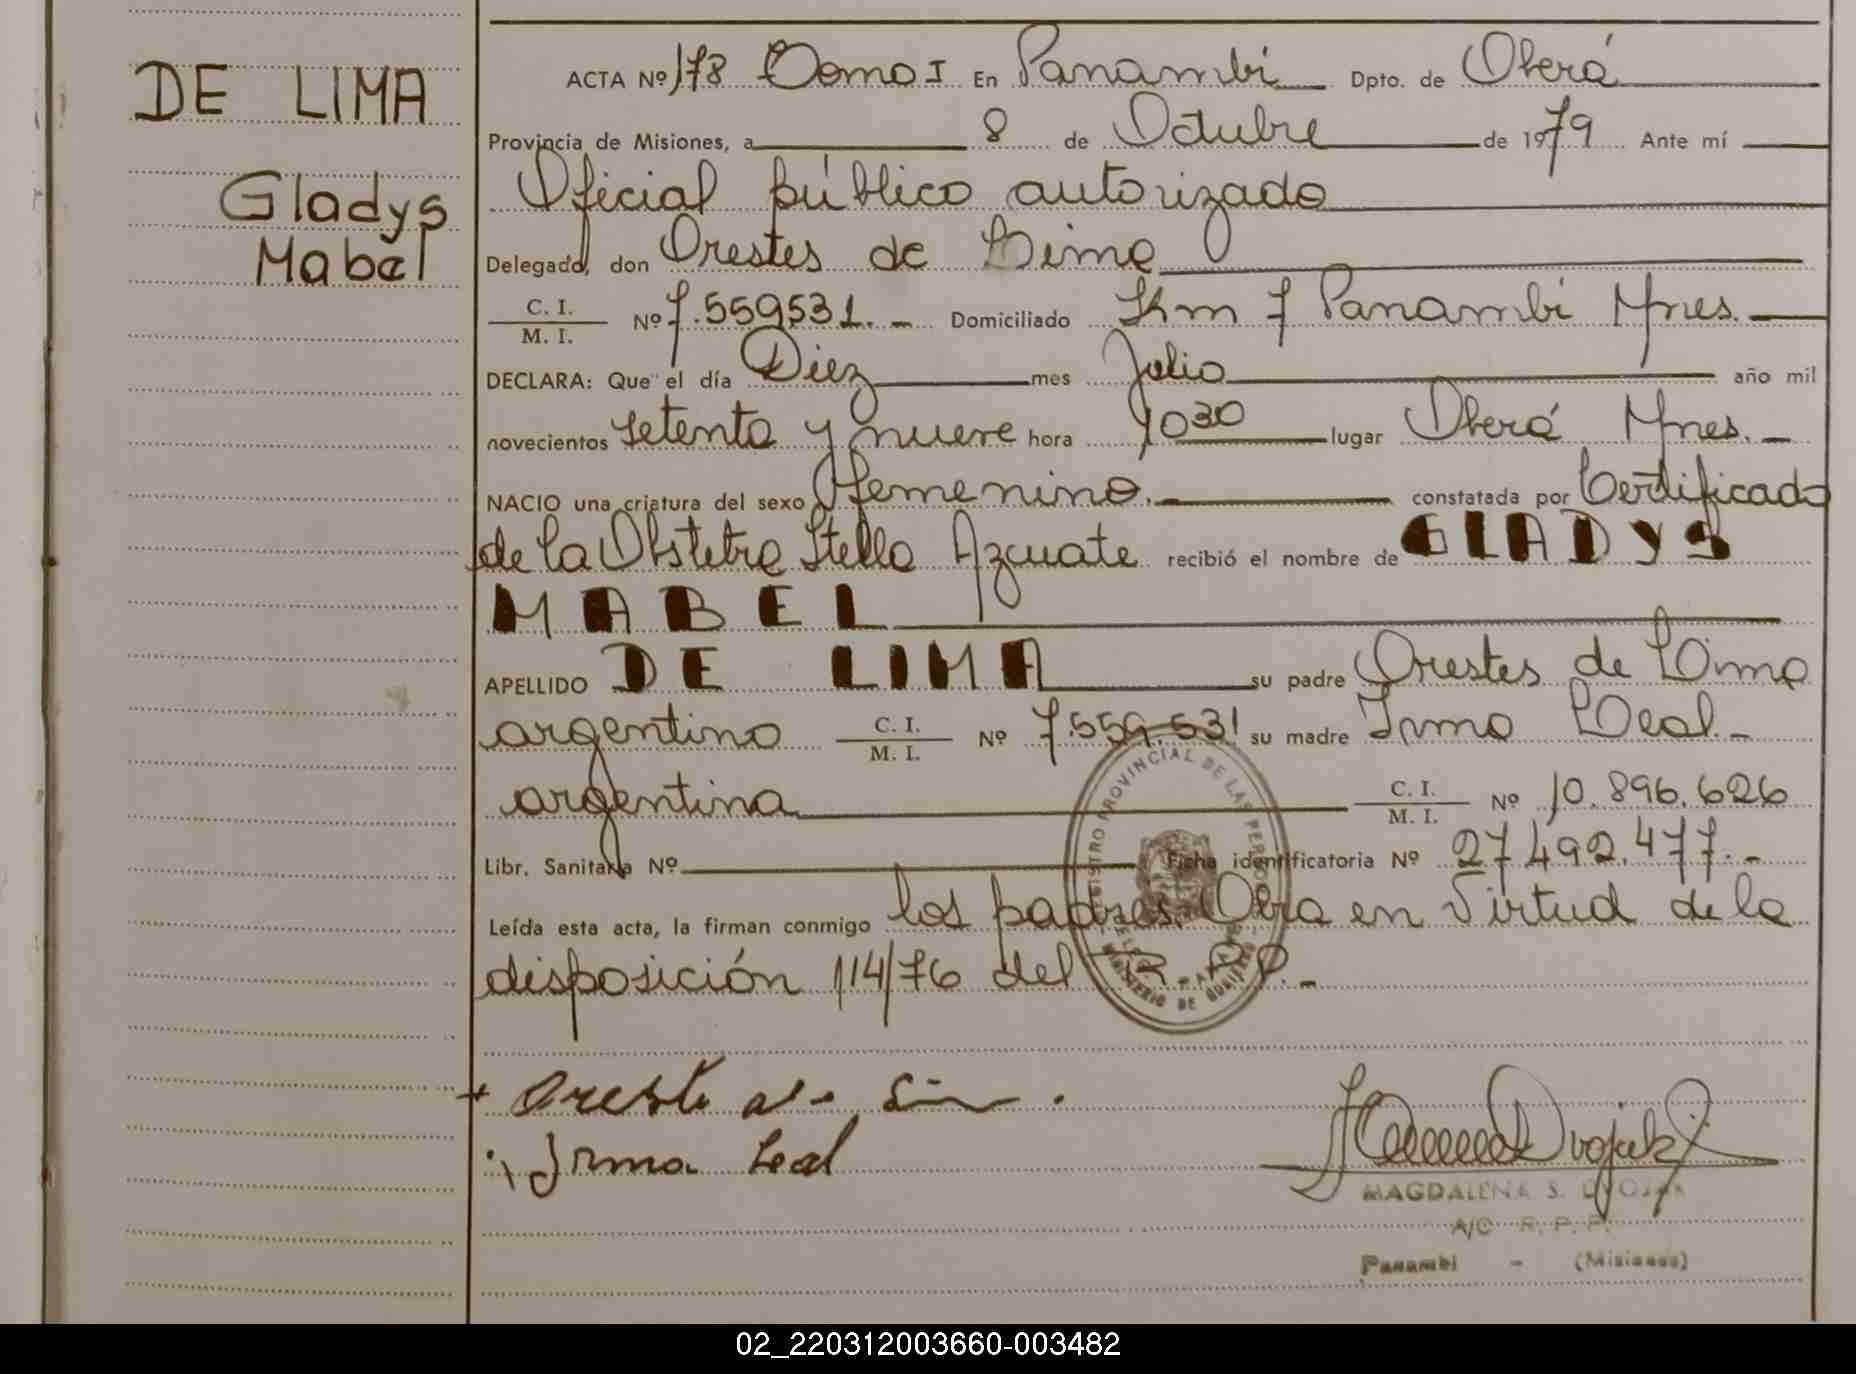 DE LIMA
Gladys
Mabel
ACTA Nº 178 Tomo I En Panambi Dpto. de Oberá
Provincia de Misiones, a 8 de Octubre de 1979 Ante mí
Oficial público autorizado
Delegado, don Orestes de Lima
C. I.
M. I. Nº 7.559531. Domiciliado Km 7 Panambi Mnes.
DECLARA: Que el día Diez mes Julio año mil
novecientos setenta y nueve hora 1030 lugar Oberá Mnes.
NACIO una criatura del sexo femenino. constatada por Certificado
de la Obstetra Stella Azcuate recibió el nombre de GLADYS
MABEL
APELLIDO DE LIMA su padre Orestes de Lima
argentino C. I. M. I. Nº 7.559.531 su madre Irma Leal.
argentina C. I. M. I. Nº 10.896.626
Libr. Sanitaria Nº Ficha identificatoria Nº 27492.477.
Leída esta acta, la firman conmigo los padres. Obra en Virtud de la
disposición 114/76 del R.P.P.
REGISTRO PROVINCIAL DE LAS PERSONAS
MINISTERIO DE GOBIERNO
Oreste de Lima
Irma Leal
MAGDALENA S. DVOJAK
A/C R. P. P.
Panambi - (Misiones)
02_220312003660-003482